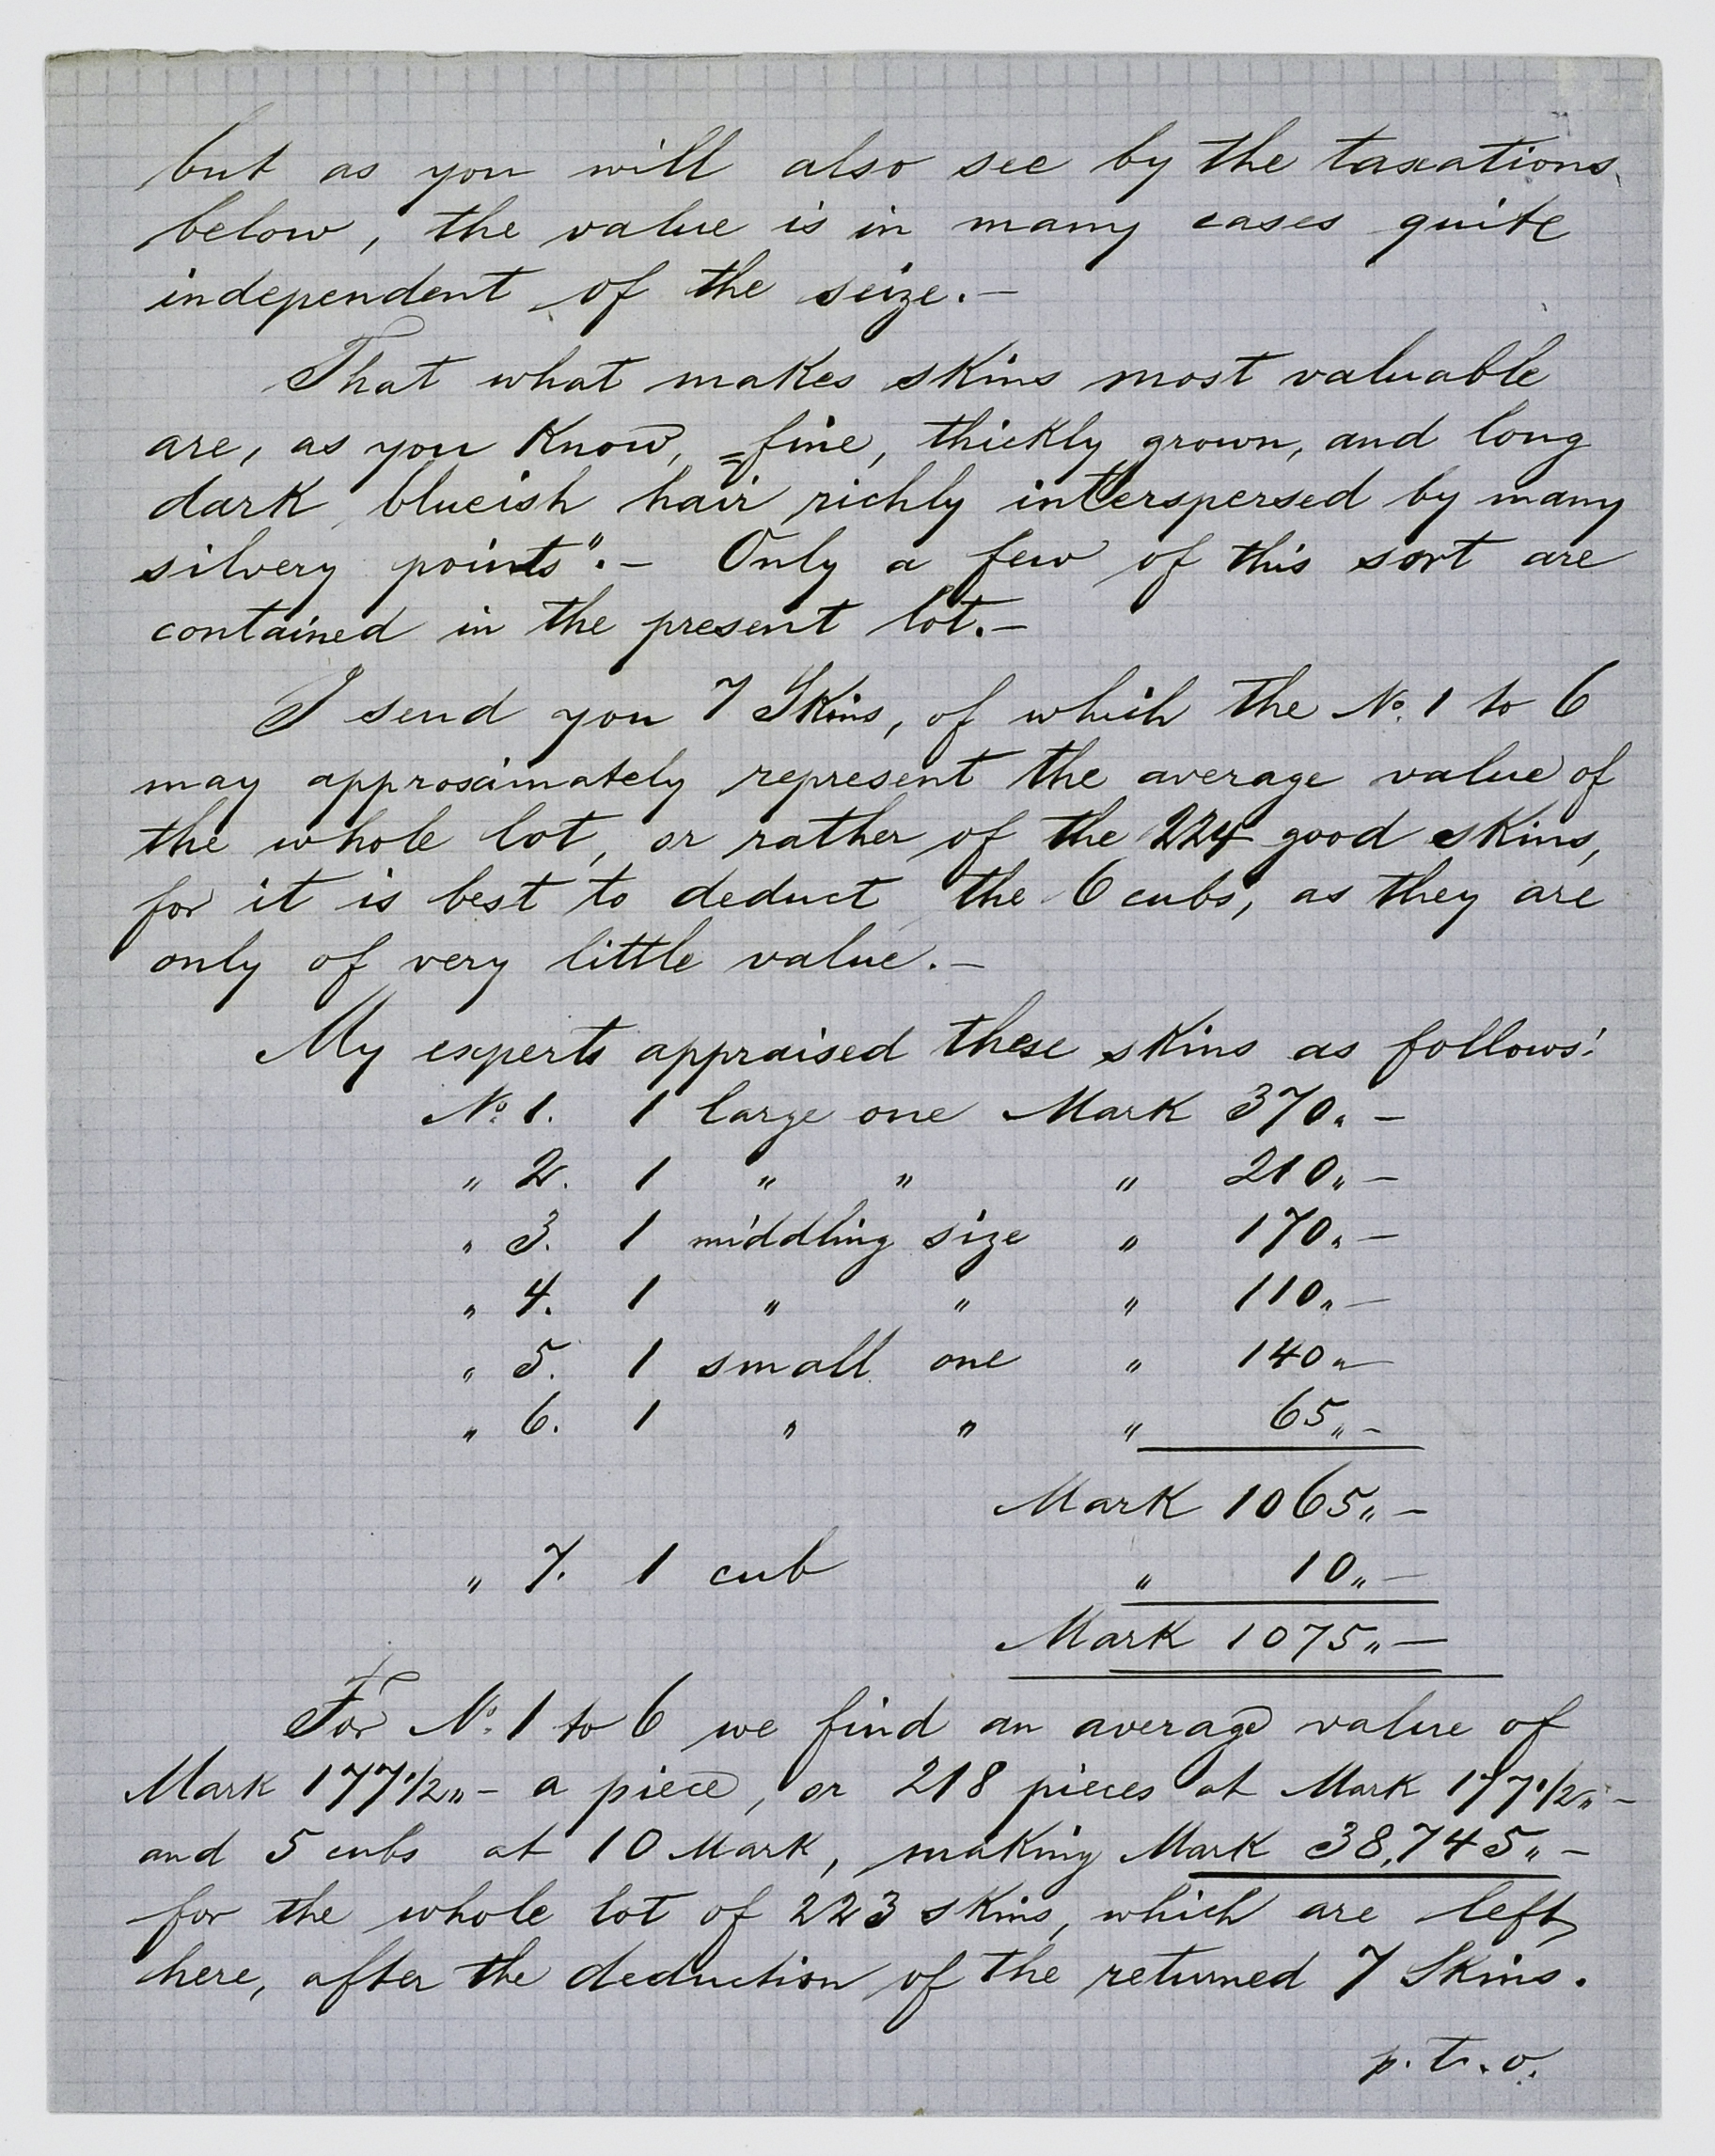 but as you will also see by the taxations
below, the value is in many cases quite
independent of the seize.—
That what makes skins most valuable
are, as you know, „fine, thickly grown, and long
dark blueish hair richly interspersed by many
silvery points".— Only a few of this sort are
contained in the present lot.—
I send you 7 Skins, of which the No. 1 to 6
may approximately represent the average value of
the whole lot, or rather of the 224 good skins,
for it is best to deduct the 6 cubs, as they are
only of very little value.—
My experts appraised these skins as follows:
No. 1. 1 large one Mark 370„ —
„ 2. 1 „ „ „ 210„ —
„ 3. 1 middling size „ 170„ —
„ 4. 1 „ „ „ 110„ —
„ 5. 1 small one „ 140„ —
„ 6. 1 „ „ „ 65„ —
Mark 1065„ —
„ 7. 1 cub „ 10„ —
Mark 1075„ —
For No. 1 to 6 we find an average value of
Mark 177 1/2„ — a piece, or 218 pieces at Mark 177 1/2„ —
and 5 cubs at 10 Mark, making Mark 38,745„ —
for the whole lot of 223 skins, which are left
here, after the deduction of the returned 7 Skins.
p. t. o.